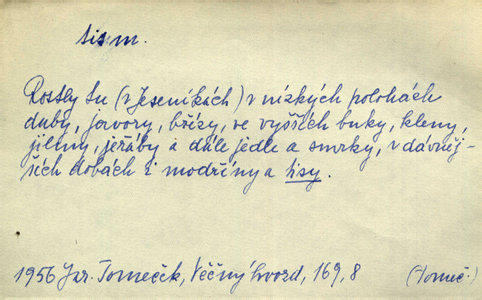 tis m.
Rostly tu (v Jeseníkách) v nízkých polohách
duby, javory, břízy, ve vyšších buky, kleny,
jilmy, jeřáby a dále jedle a smrky, v dávněj-
ších dobách i modříny a tisy.
1956 Jar. Tomeček, Věčný hvozd, 169, 8 (Tomeč.)